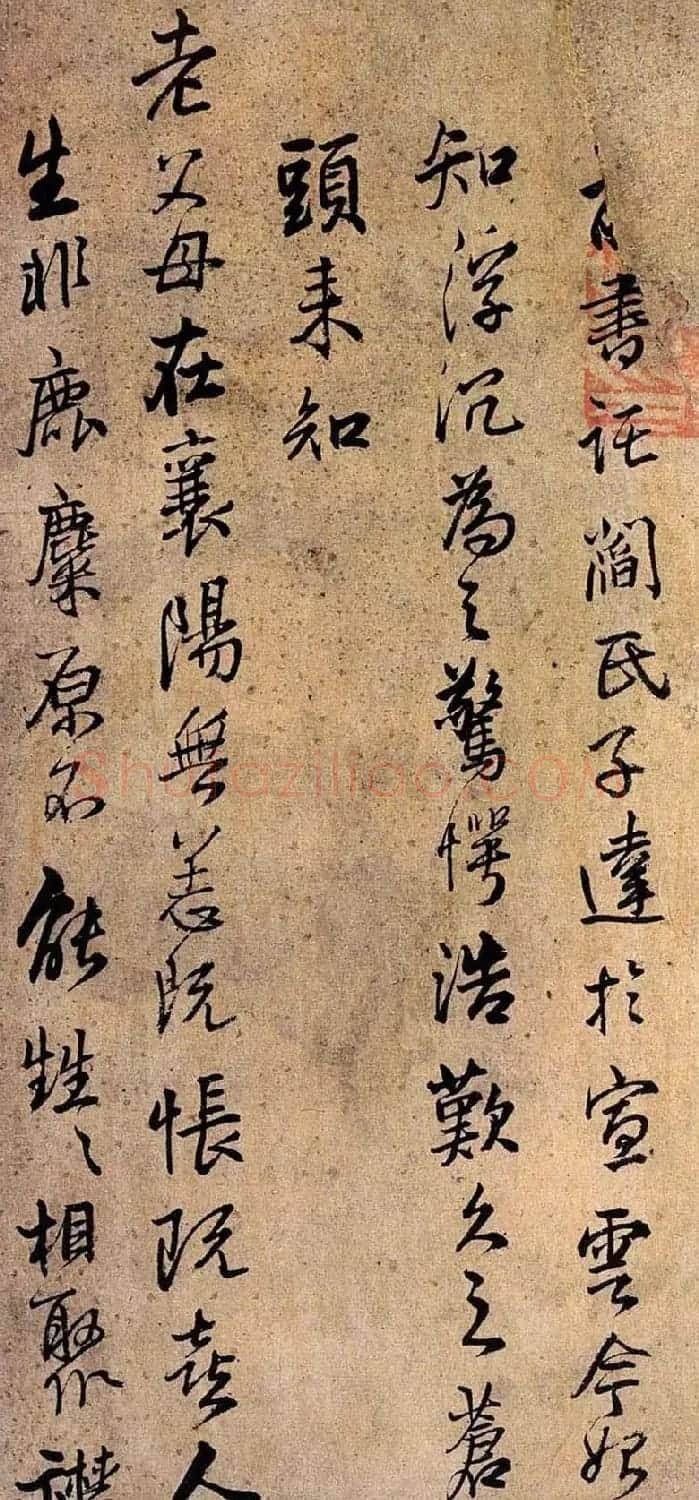 書託閻氏子達於宣雲今始
知浮沉為之驚愕浩歎久之蒼
頭来知
老父母在襄陽無恙既悵既喜人
生非鹿麋原不能甡〻相聚
Shufaziliao.com